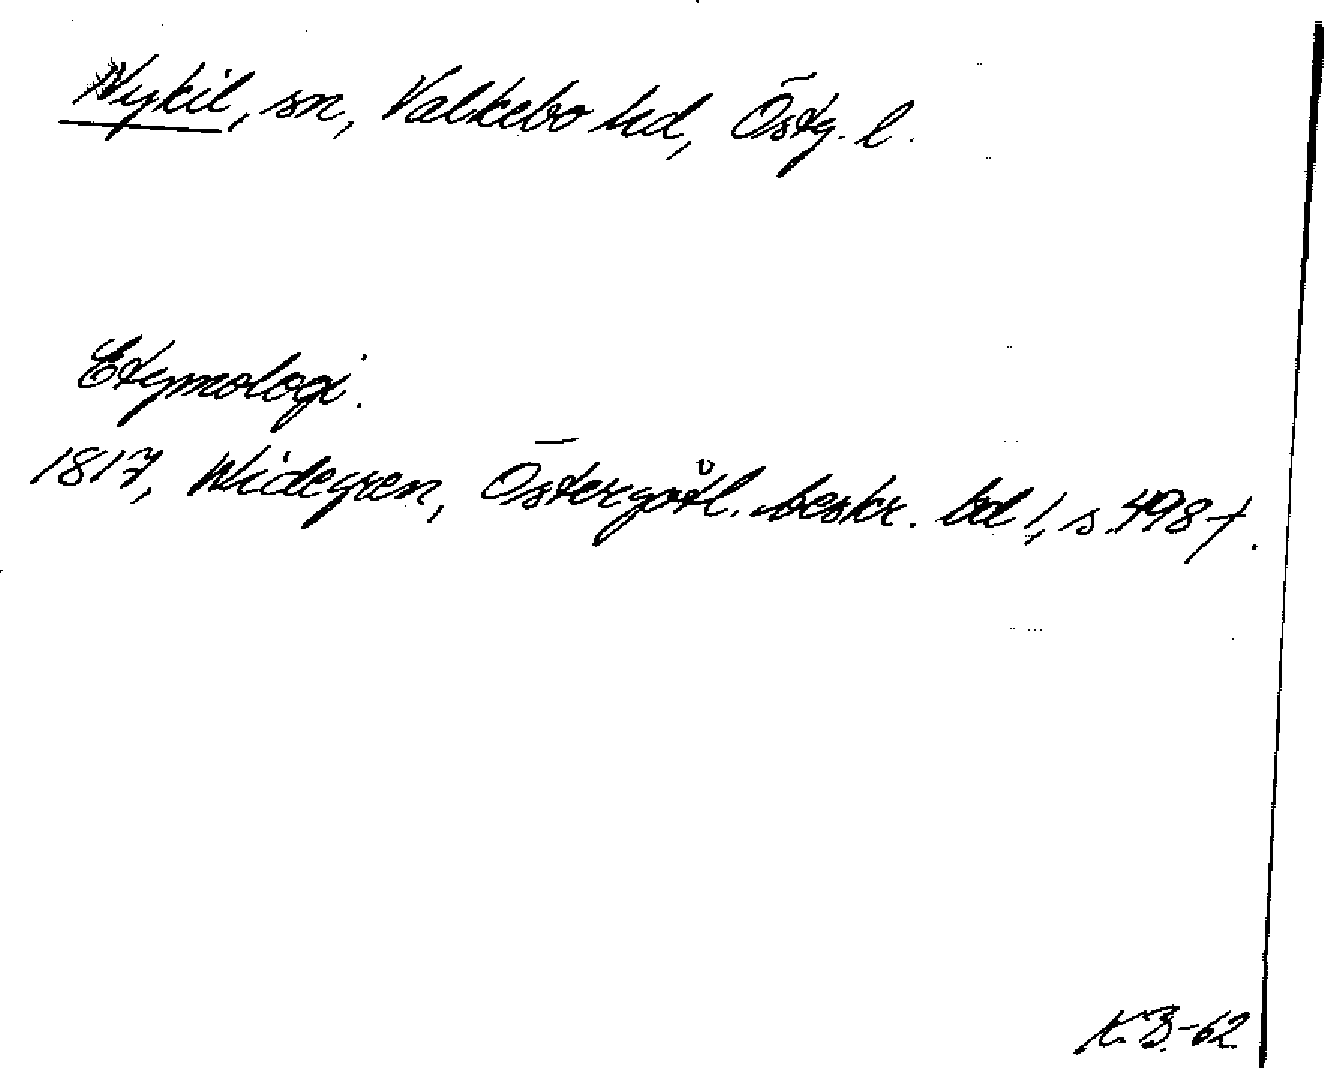 Nykil, sn, Valkebo hd, Östg. l.
Etymologi.
1817, Widegren, Östergötl. beskr. bd 1, s. 498 f.
K.B.-62